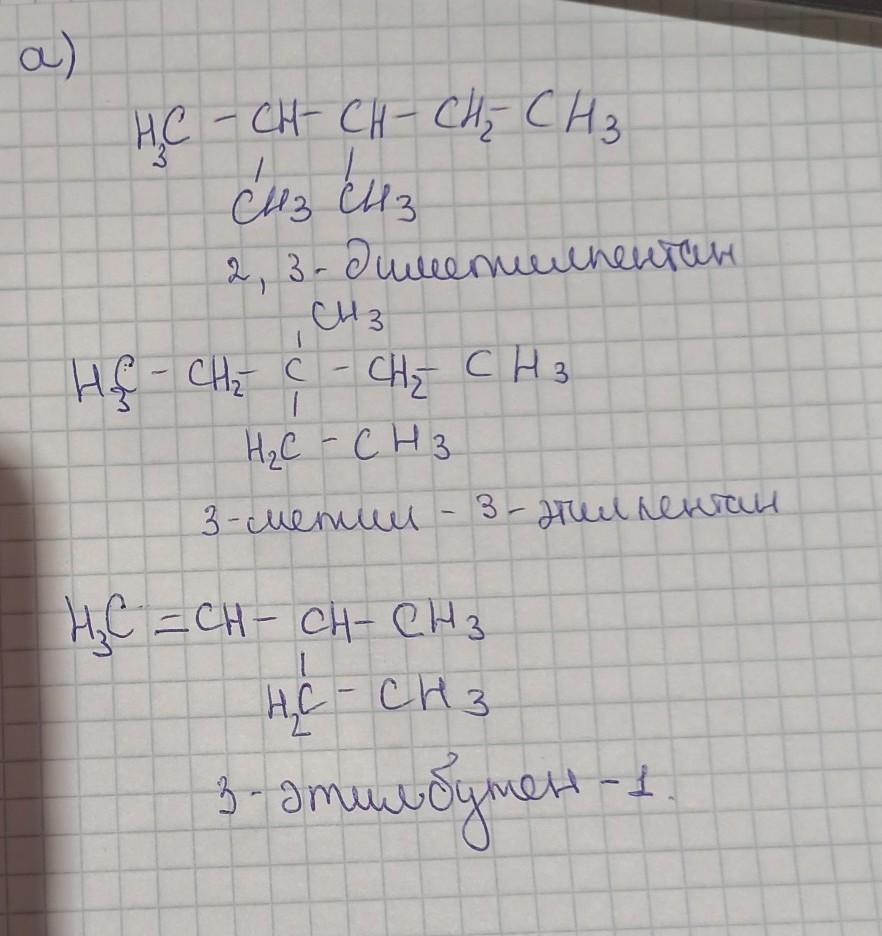 а)
H₃C - CH - CH - CH₂ - CH3
CH3 CH3
2, 3 - диметилпентан
CH3
H₃C - CH₂ - C - CH₂ - CH3
H₂C - CH3
3 - метил - 3 - этилпентан
H₃C = CH - CH - CH3
H₂C - CH3
3 - этилбутен - 1.